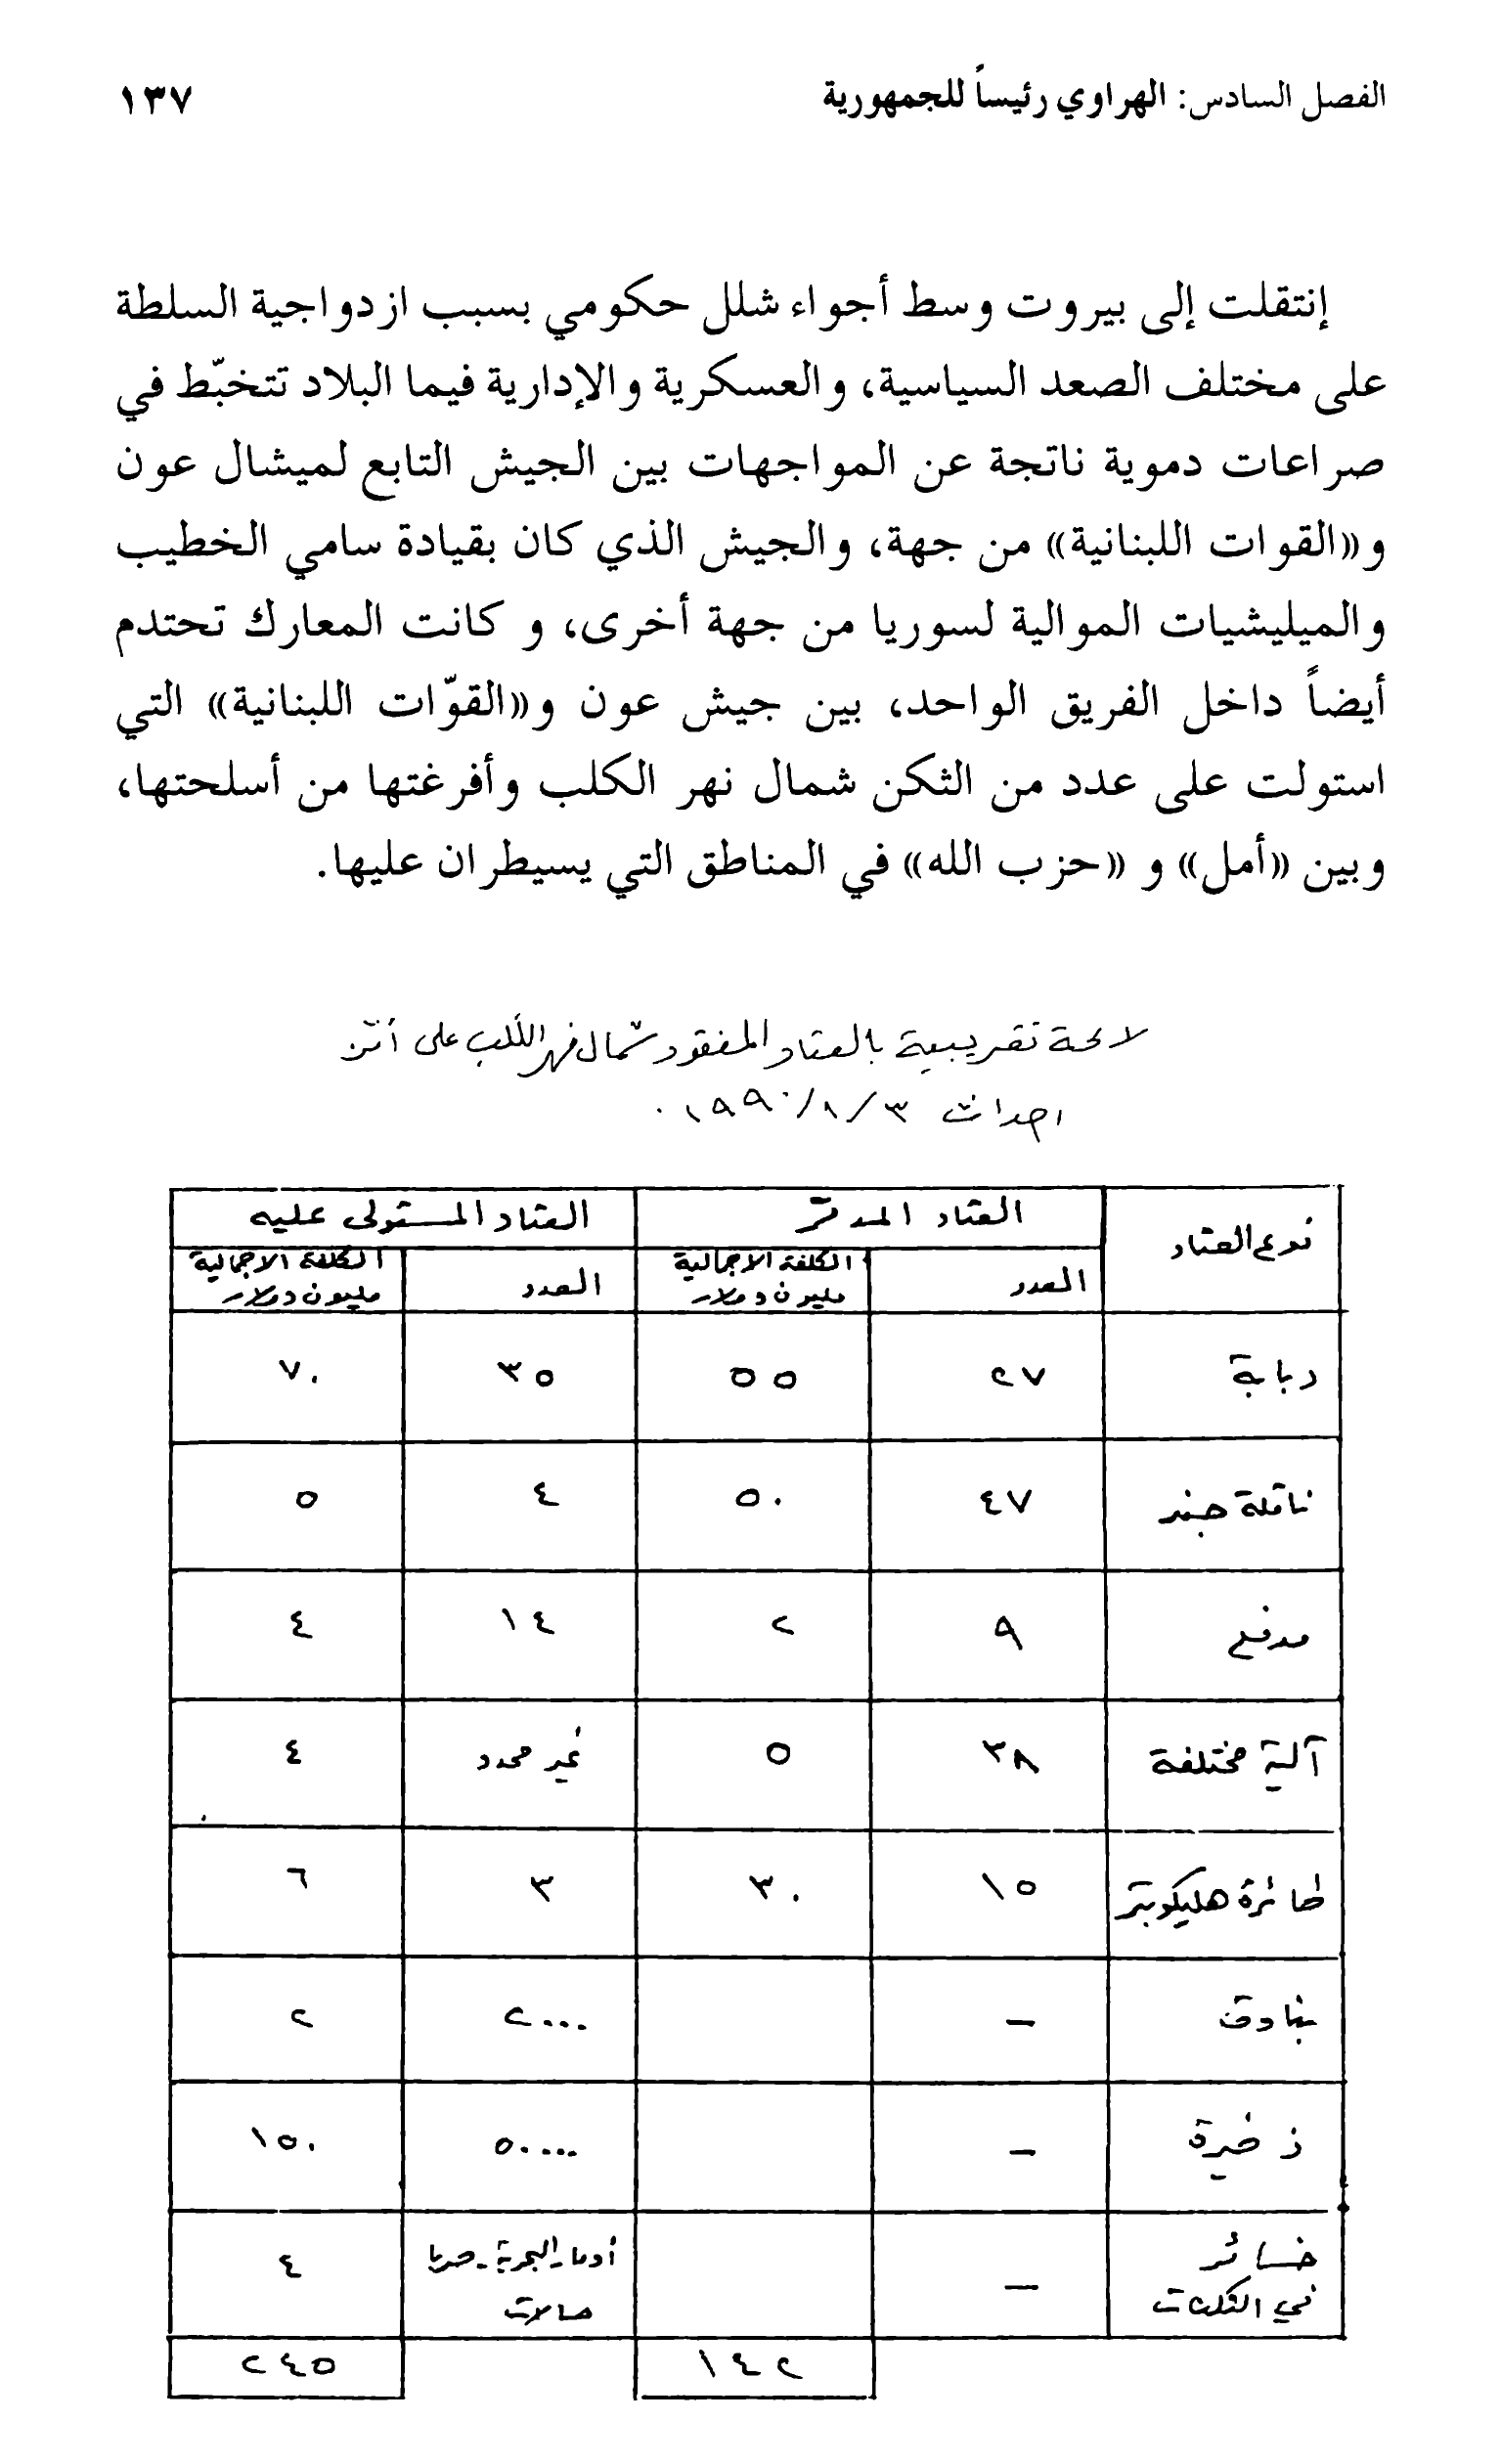 الفصل السادس: الهراوي رئيساً للجمهورية ١٣٧
إنتقلت إلى بيروت وسط أجواء شلل حكومي بسبب ازدواجية السلطة
على مختلف الصعد السياسية، والعسكرية والإدارية فيما البلاد تتخبّط في
صراعات دموية ناتجة عن المواجهات بين الجيش التابع لميشال عون
و«القوات اللبنانية» من جهة، والجيش الذي كان بقيادة سامي الخطيب
والميليشيات الموالية لسوريا من جهة أخرى، و كانت المعارك تحتدم
أيضاً داخل الفريق الواحد، بين جيش عون و«القوّات اللبنانية» التي
استولت على عدد من الثكن شمال نهر الكلب وأفرغتها من أسلحتها،
وبين «أمل» و «حزب الله» في المناطق التي يسيطران عليها.
لائحة تقريبية بالعتاد المفقود شمال نهر الكلب على أثر
احداث ٣/٨/١٩٩٠.
نوع العتاد العتاد المدمّر العتاد المستولى عليه
العدد الكلفة الاجمالية العدد الكلفة الاجمالية
مليون دولار مليون دولار
دبابة ٢٧ ٥٥ ٣٥ ٧٠
ناقلة جند ٤٧ ٥٠ ٤ ٥
مدفع ٩ ٢ ١٤ ٤
آلية مختلفة ٣٨ ٥ غير محدد ٤
طائرة هليكوبتر ١٥ ٣٠ ٣ ٦
بنادق - ٢٠٠٠ ٢
ذخيرة - ٥٠٠٠٠ ١٥٠
خسائر - أدما - البحرية - صربا ٤
في الثكنات حالات
١٤٢ ٢٤٥